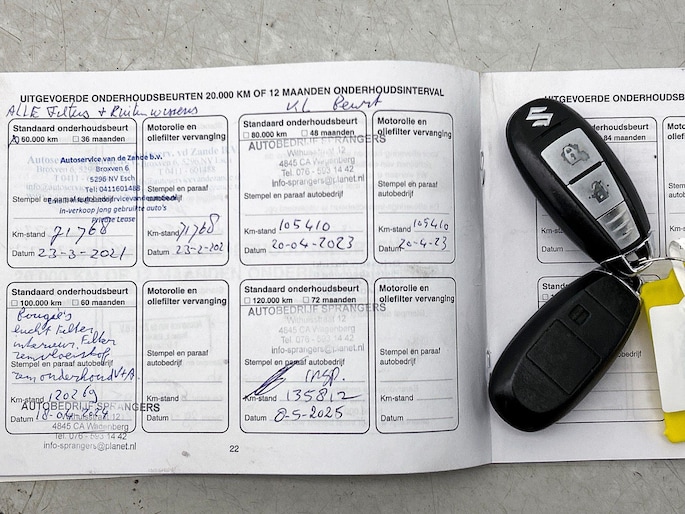 UITGEVOERDE ONDERHOUDSBEURTEN 20.000 KM OF 12 MAANDEN ONDERHOUDSINTERVAL
ALLE Filters + Ruitenwissers
KL Beurt
Standaard onderhoudsbeurt
60.000 km 36 maanden
Autoservice van de Zande b.v.
Broxven 6
5296 NV Esch
Tel: 0411601488
Stempel en paraaf autobedrijf
in-verkoop jong gebruikte auto's
Private Lease
Km-stand 71768
Datum 23-3-2021
Motorolie en
oliefilter vervanging
Stempel en paraaf
autobedrijf
Km-stand 71768
Datum 23-2-2021
Standaard onderhoudsbeurt
80.000 km 48 maanden
AUTOBEDRIJF SPRANGERS
Withuisstraat 12
4845 CA Wagenberg
Tel. 076 - 593 14 42
info-sprangers@planet.nl
Stempel en paraaf autobedrijf
Km-stand 105410
Datum 20-04-2023
Motorolie en
oliefilter vervanging
Stempel en paraaf
autobedrijf
Km-stand 105410
Datum 20-4-23
Standaard onderhoudsbeurt
100.000 km 60 maanden
Bougie's
lucht Filter
interieur Filter
remvloeistof
Stempel en paraaf autobedrijf
remonderhoud V+A.
Km-stand 120269
AUTOBEDRIJF SPRANGERS
Datum
Withuisstraat 12
4845 CA Wagenberg
Tel. 076 - 593 14 42
info-sprangers@planet.nl
Motorolie en
oliefilter vervanging
Stempel en paraaf
autobedrijf
Km-stand
Datum
Standaard onderhoudsbeurt
120.000 km 72 maanden
AUTOBEDRIJF SPRANGERS
Withuisstraat 12
4845 CA Wagenberg
Tel. 076 - 593 14 42
info-sprangers@planet.nl
Stempel en paraaf autobedrijf
insp.
Km-stand 135812
Datum 8-5-2025
Motorolie en
oliefilter vervanging
Stempel en paraaf
autobedrijf
Km-stand
Datum
22
UITGEVOERDE ONDERHOUDSB
84 maanden